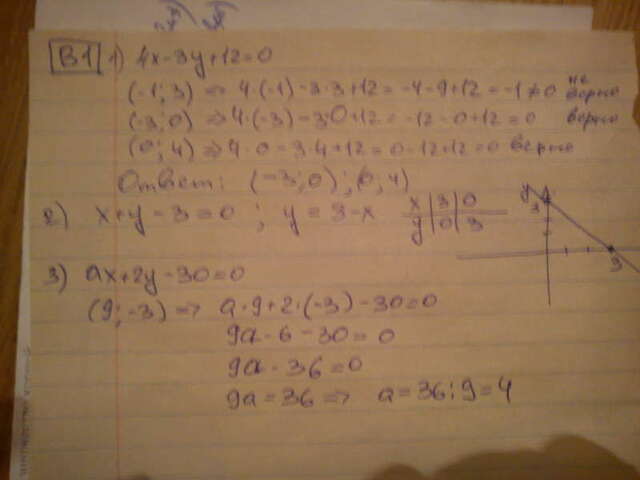 В1 1) 4x-3y+12=0
(-1; 3) => 4·(-1)-3·3+12=-4-9+12=-1≠0 не верно
(-3; 0) => 4·(-3)-3·0+12=-12-0+12=0 верно
(0; 4) => 4·0-3·4+12=0-12+12=0 верно
Ответ: (-3; 0); (0; 4)
2) x+y-3=0; y=3-x
x | 3 | 0
y | 0 | 3
y
3
3
3) ax+2y-30=0
(9; -3) => a·9+2·(-3)-30=0
9a-6-30=0
9a-36=0
9a=36 => a=36:9=4